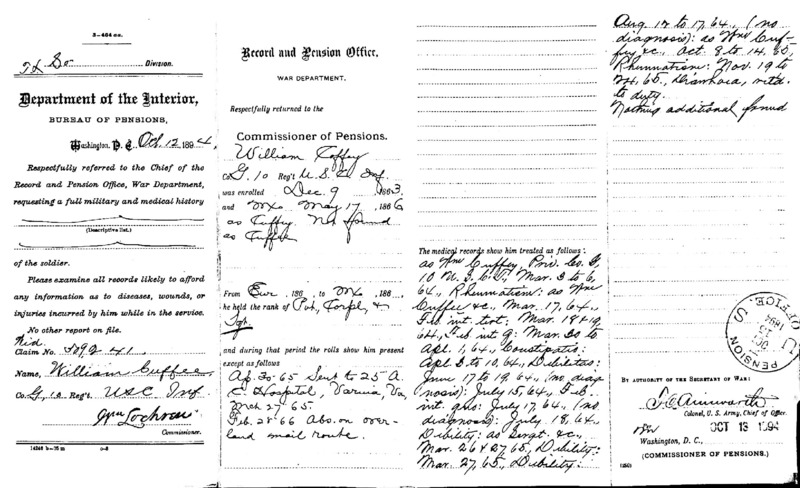 3-464 aa.
Division.
Department of the Interior,
BUREAU OF PENSIONS,
Washington, D. C., Oct. 12, 1894.
Respectfully referred to the Chief of the
Record and Pension Office, War Department,
requesting a full military and medical history
(Descriptive list.)
of the soldier.
Please examine all records likely to afford
any information as to diseases, wounds, or
injuries incurred by him while in the service.
No other report on file.
Claim No.
Name, William Cuffee
Co. G, 10 Reg't USC Inf
Wm Lochren
Commissioner.
Record and Pension Office,
WAR DEPARTMENT.
Respectfully returned to the
Commissioner of Pensions.
William Coffey
Co. G, 10 Reg't U.S.C. Inf
was enrolled Dec. 9 1863
and M.O. May 17, 1866
as Cuffey Not found
as Cuffee
From Enr, 186 , to MO, 186 ,
he held the rank of Pvt, Corpl, &
Sgt.
and during that period the rolls show him present
except as follows
Ap. 30-65 Sent to 25 A.
C. Hospital, Varina, Va,
Mch 27 65
Feb. 28 66 Abs. on over-
land mail route.
The medical records show him treated as follows:
as Wm Cuffey, Priv. Co. G,
10 U.S.C.T., Mar. 3 to 6,
64, Rheumatism: as Wm
Cuffee &c., Mar. 17, 64,
Feb. int. tert: Mar. 18 & 19
64, Feb. int. q: Mar. 30 to
Apl. 1, 64, Constipatio:
Apl. 8 to 10, 64, Debilitas:
June 17 to 19, 64, (no diag-
nosis): July 15, 64, Feb.
int. : July 17, 64, (no
diagnosis): July 18, 64,
Debility: as Sergt. &c.,
Mar. 26 & 27 65, Debility:
Mar. 27, 65, Debility:
Aug. 12 to 17, 64, (no
diagnosis): as Wm Cuf-
fey &c., Oct. 8 to 14, 65,
Rheumatism: Nov. 19 to
24, 65, Diarrhoea, retd.
to duty.
Nothing additional found
U.S. PENSION OFFICE.
OCT
13
1894
BY AUTHORITY OF THE SECRETARY OF WAR:
F. C. Ainsworth
Colonel, U. S. Army, Chief of Office.
OCT 13 1894
Washington, D. C.,
(COMMISSIONER OF PENSIONS.)